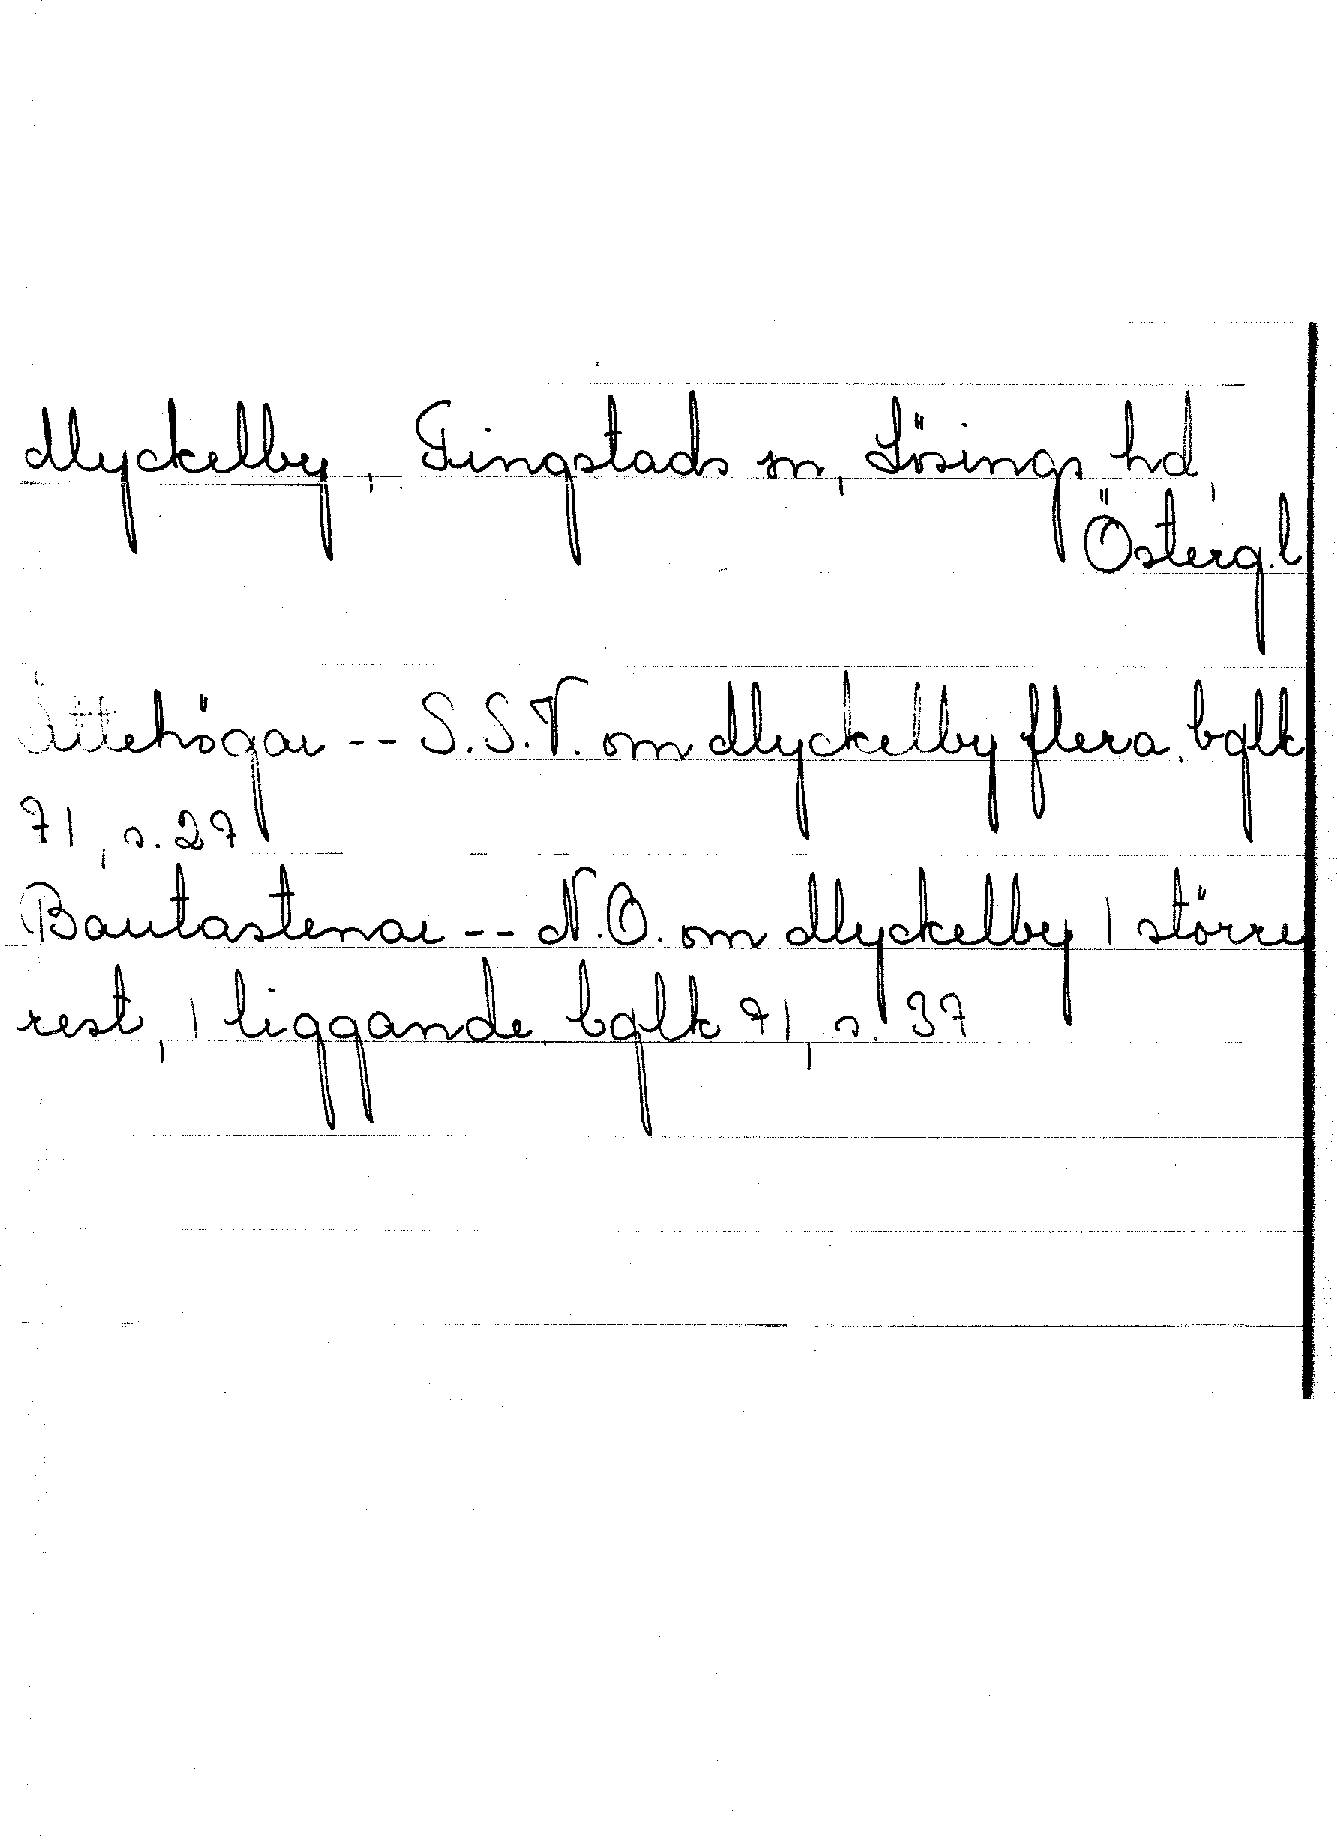 Myckelby, Tingstads sn, Lösings hd,
Österg.l
Ättehögar -- S.S.V. om Myckelby flera. bglk
71, s. 27
Bautastenar -- N.O. om Myckelby 1 större
rest, 1 liggande. bglk 71, s. 37